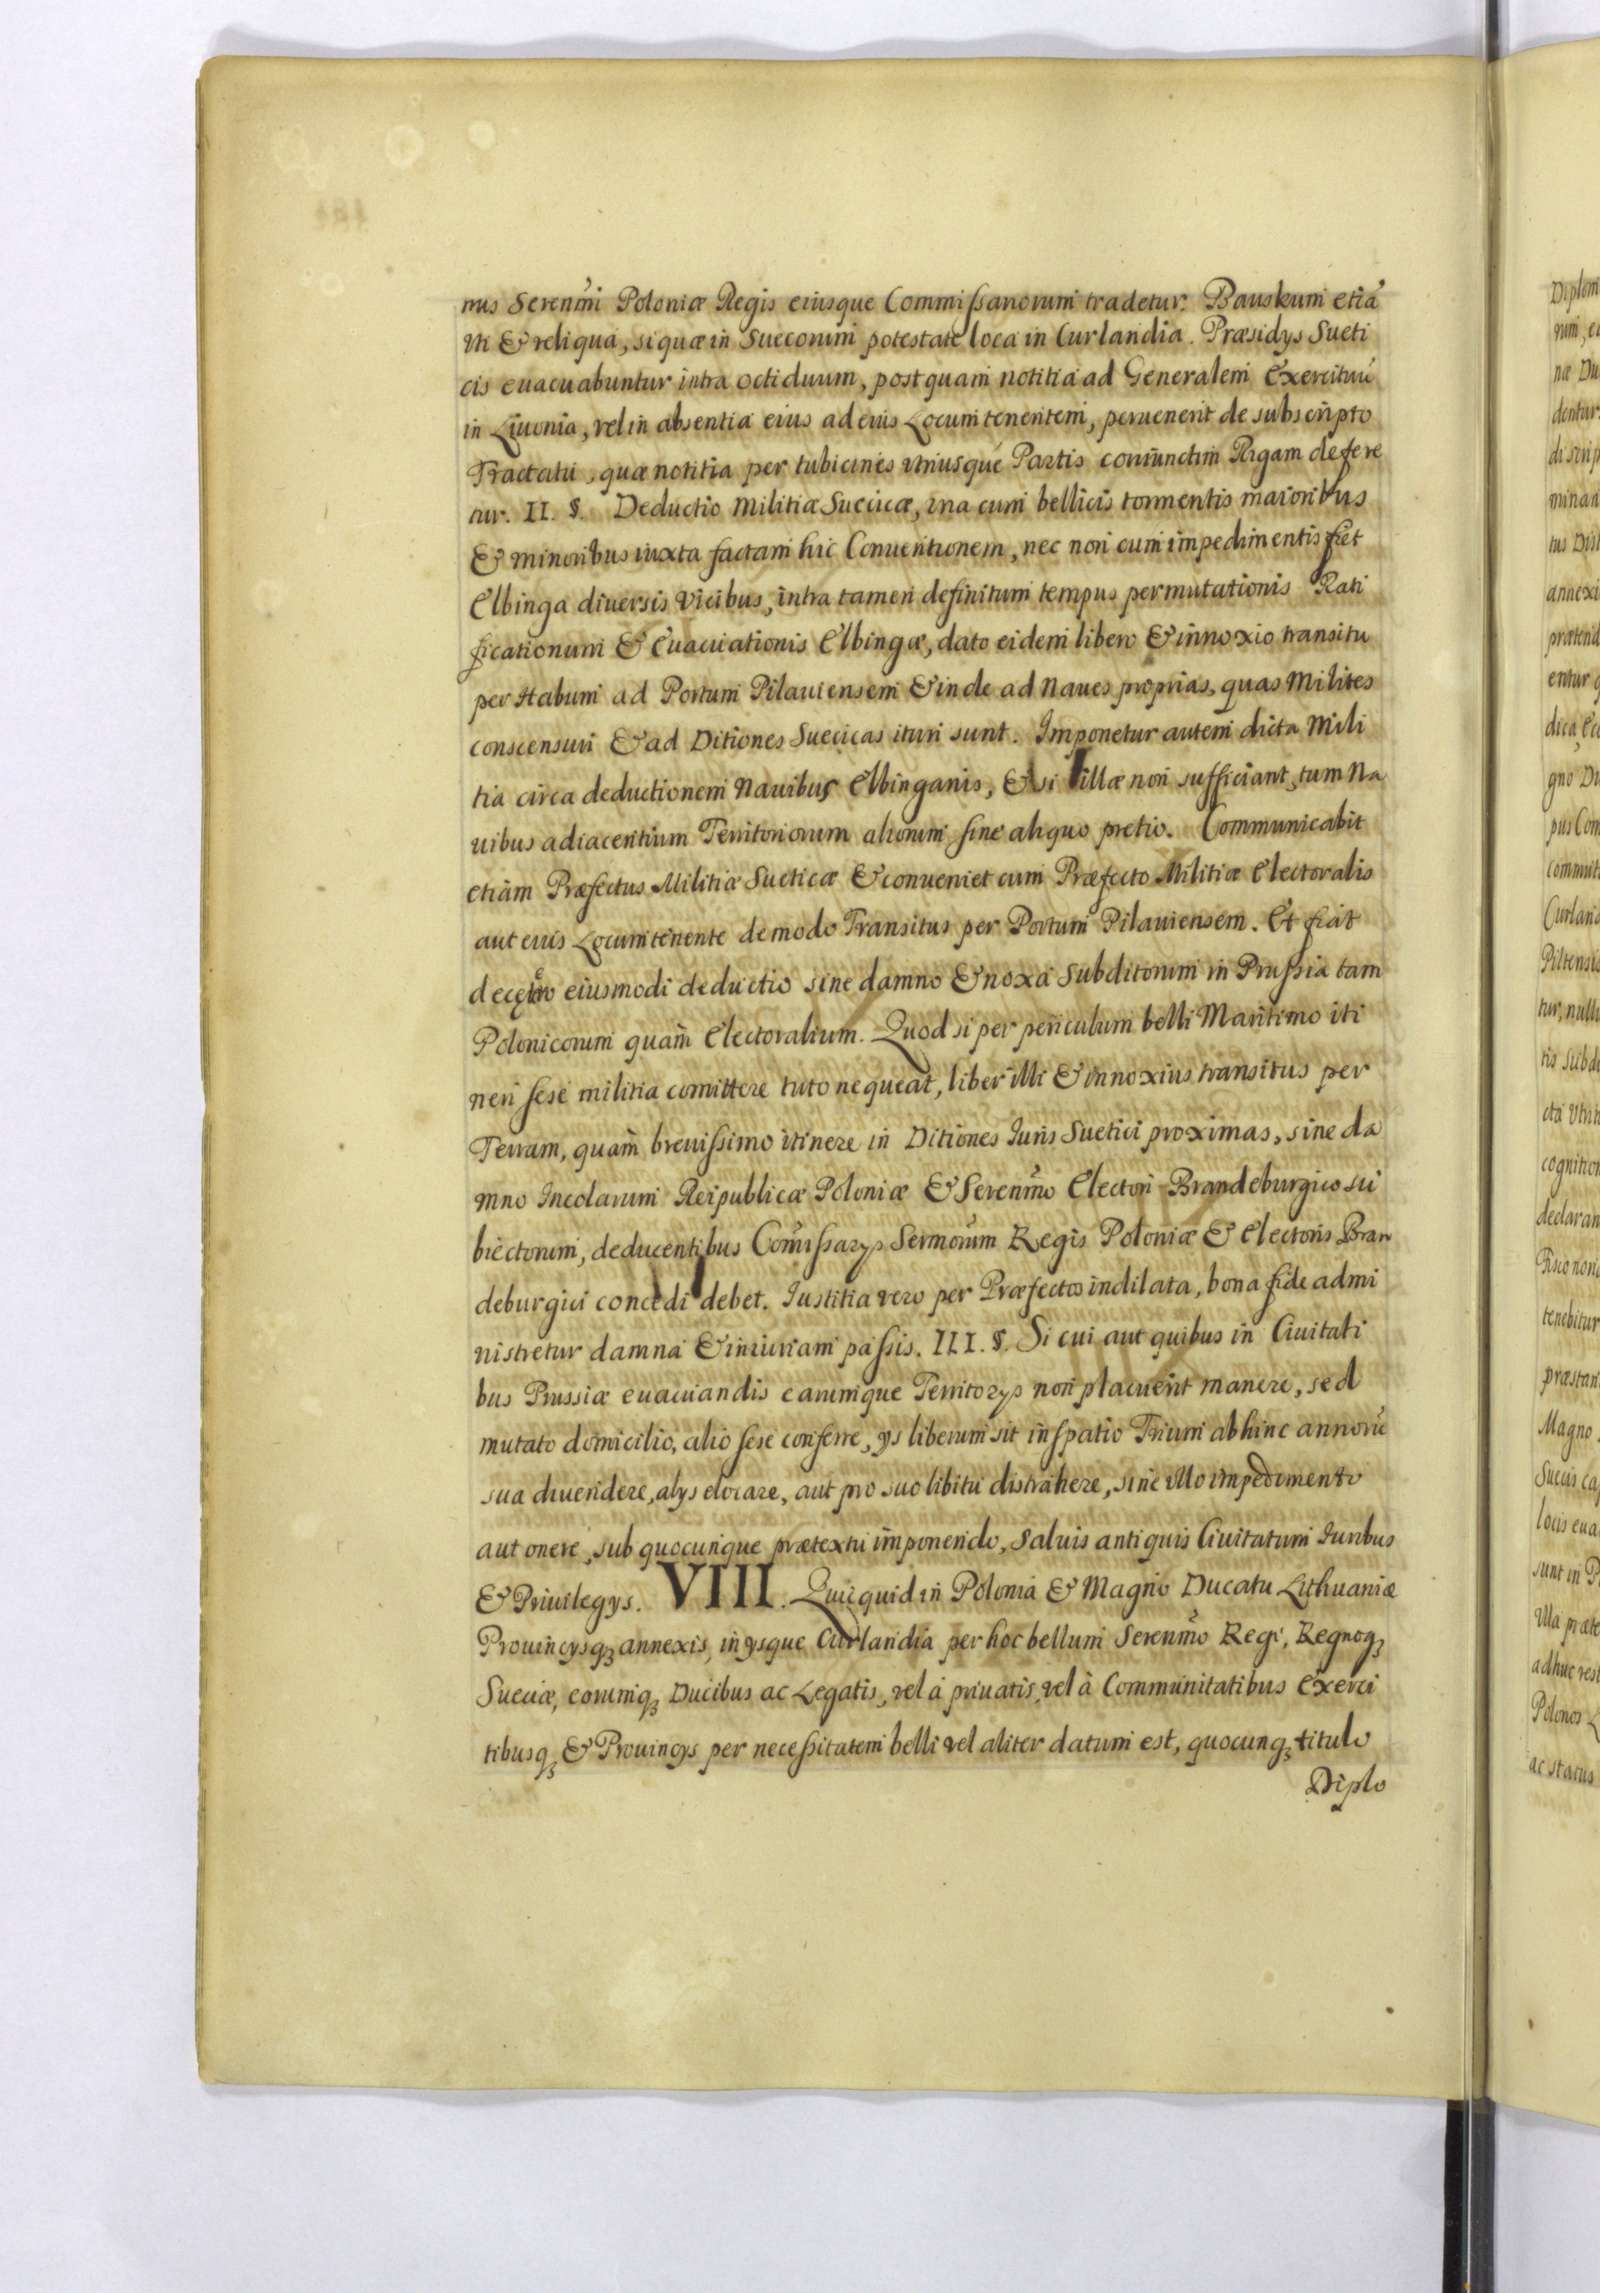 nus Serenmi Poloniæ Regis eiusque Commissariorum tradetur. Bauskum etiã
uti & reliqua, si quæ in Sueconum potestate loca in Curlandia. Præsidys Sueti
cis euacuabuntur intra octiduum, postquam notitia ad Generalem Exercituũ
in Liuonia, vel in absentia eius ad eius Locumtenentem, peruenerit de subscripto
Tractatu, quæ notitia per tubicines utriusque Partis coniunctim Rigam defere
tur. II. §. Deductio Militiæ Suecicæ, una cum bellicis tormentis maioribus
& minoribus iuxta factam hic Conuentionem, nec non cum impedimentis fiet
Elbinga diuersis Vicibus, intra tamen definitum tempus permutationis Rati
ficationum & Euacuationis Elbingæ, dato eidem libero & innoxio transitu
per Habum ad Portum Pilauiensem & inde ad Naues proprias, quas Milites
conscensuri & ad Ditiones Suecicas ituri sunt. Imponetur autem dicta Mili
tia circa deductionem Nauibus Elbinganis, & si illæ non sufficiant, tum Na
uibus adiacentium Territoriorum aliorum sine aliquo pretio. Communicabit
etiam Præfectus Militiæ Sueticæ & conueniet cum Præfecto Militiæ Electoralis
aut eius Locumtenente de modo Transitus per Portum Pilauiensem. Et fiat
eiusmodi deductio sine damno & noxa Subditorum in Prussia tam
Polonicorum quam Electoralium. Quod si per periculum belli Maritimo iti
neri sese militia comittere tuto nequeat, liber illi & innoxius transitus per
Terram, quam breuissimo itinere in Ditiones Iuris Suetici proximas, sine da
mno Incolarum Reipublicæ Poloniæ & Serenmo Electori Brandeburgico su
biectorum, deducentibus Comissarys Sermorum Regis Poloniæ & Electoris Bran
deburgici concedi debet. Iustitia vero per Præfectos indilata, bona fide admi
nistretur damna & iniuriam passis. III. §. Si cui aut quibus in Ciuitati
bus Prussiæ euacuandis earumque Territorys non placuerit manere, sed
mutato domicilio, alio sese conferre, ys liberum sit in spatio Trium abhinc annorũ
sua diuendere, alys elocare, aut pro suo libitu distrahere, sine ullo impedimento
aut onere, sub quocunque prætextu imponendo, Saluis antiquis Ciuitatum Iuribus
& Priuilegys. VIII. Quicquid in Polonia & Magno Ducatu Lithuaniæ
Prouincysq; annexis, in ysque Curlandia per hoc bellum Serenmo Regi, Regnoq;
Sueciæ, eorumq; Ducibus ac Legatis, vel à priuatis, vel à Communitatibus Exerci
tibusq; & Prouincys per necessitatem belli vel aliter datum est, quocunq; titulo
Diplo